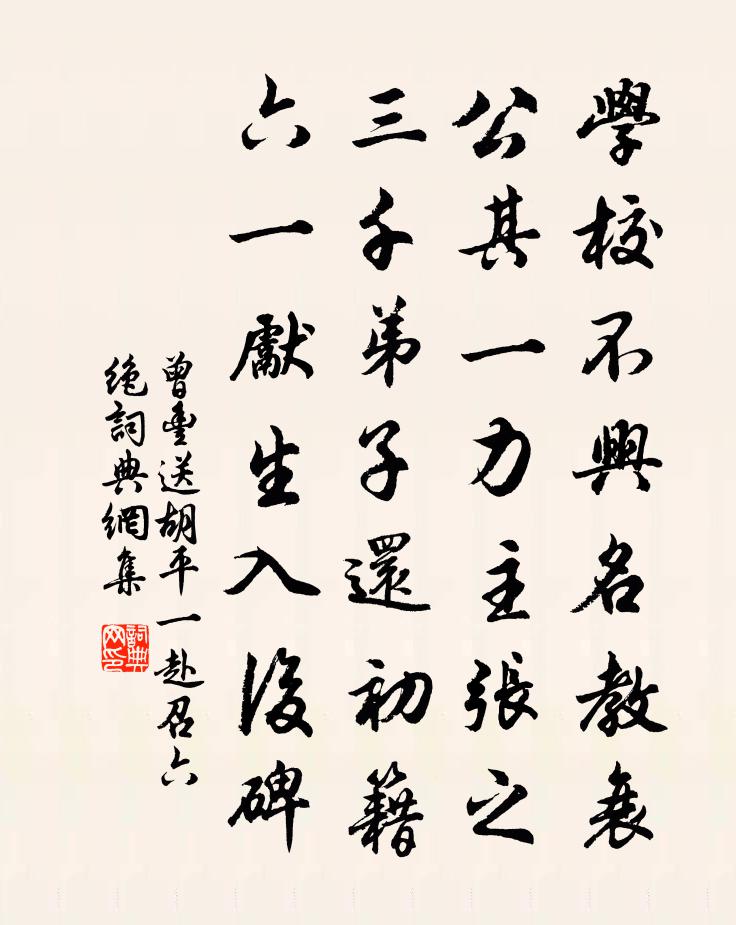 學校不興名教衰
公其一力主張之
三千弟子還初籍
六一獻生入後碑
曾豐送胡平一赴召六
絶詞典網集
詞典網印